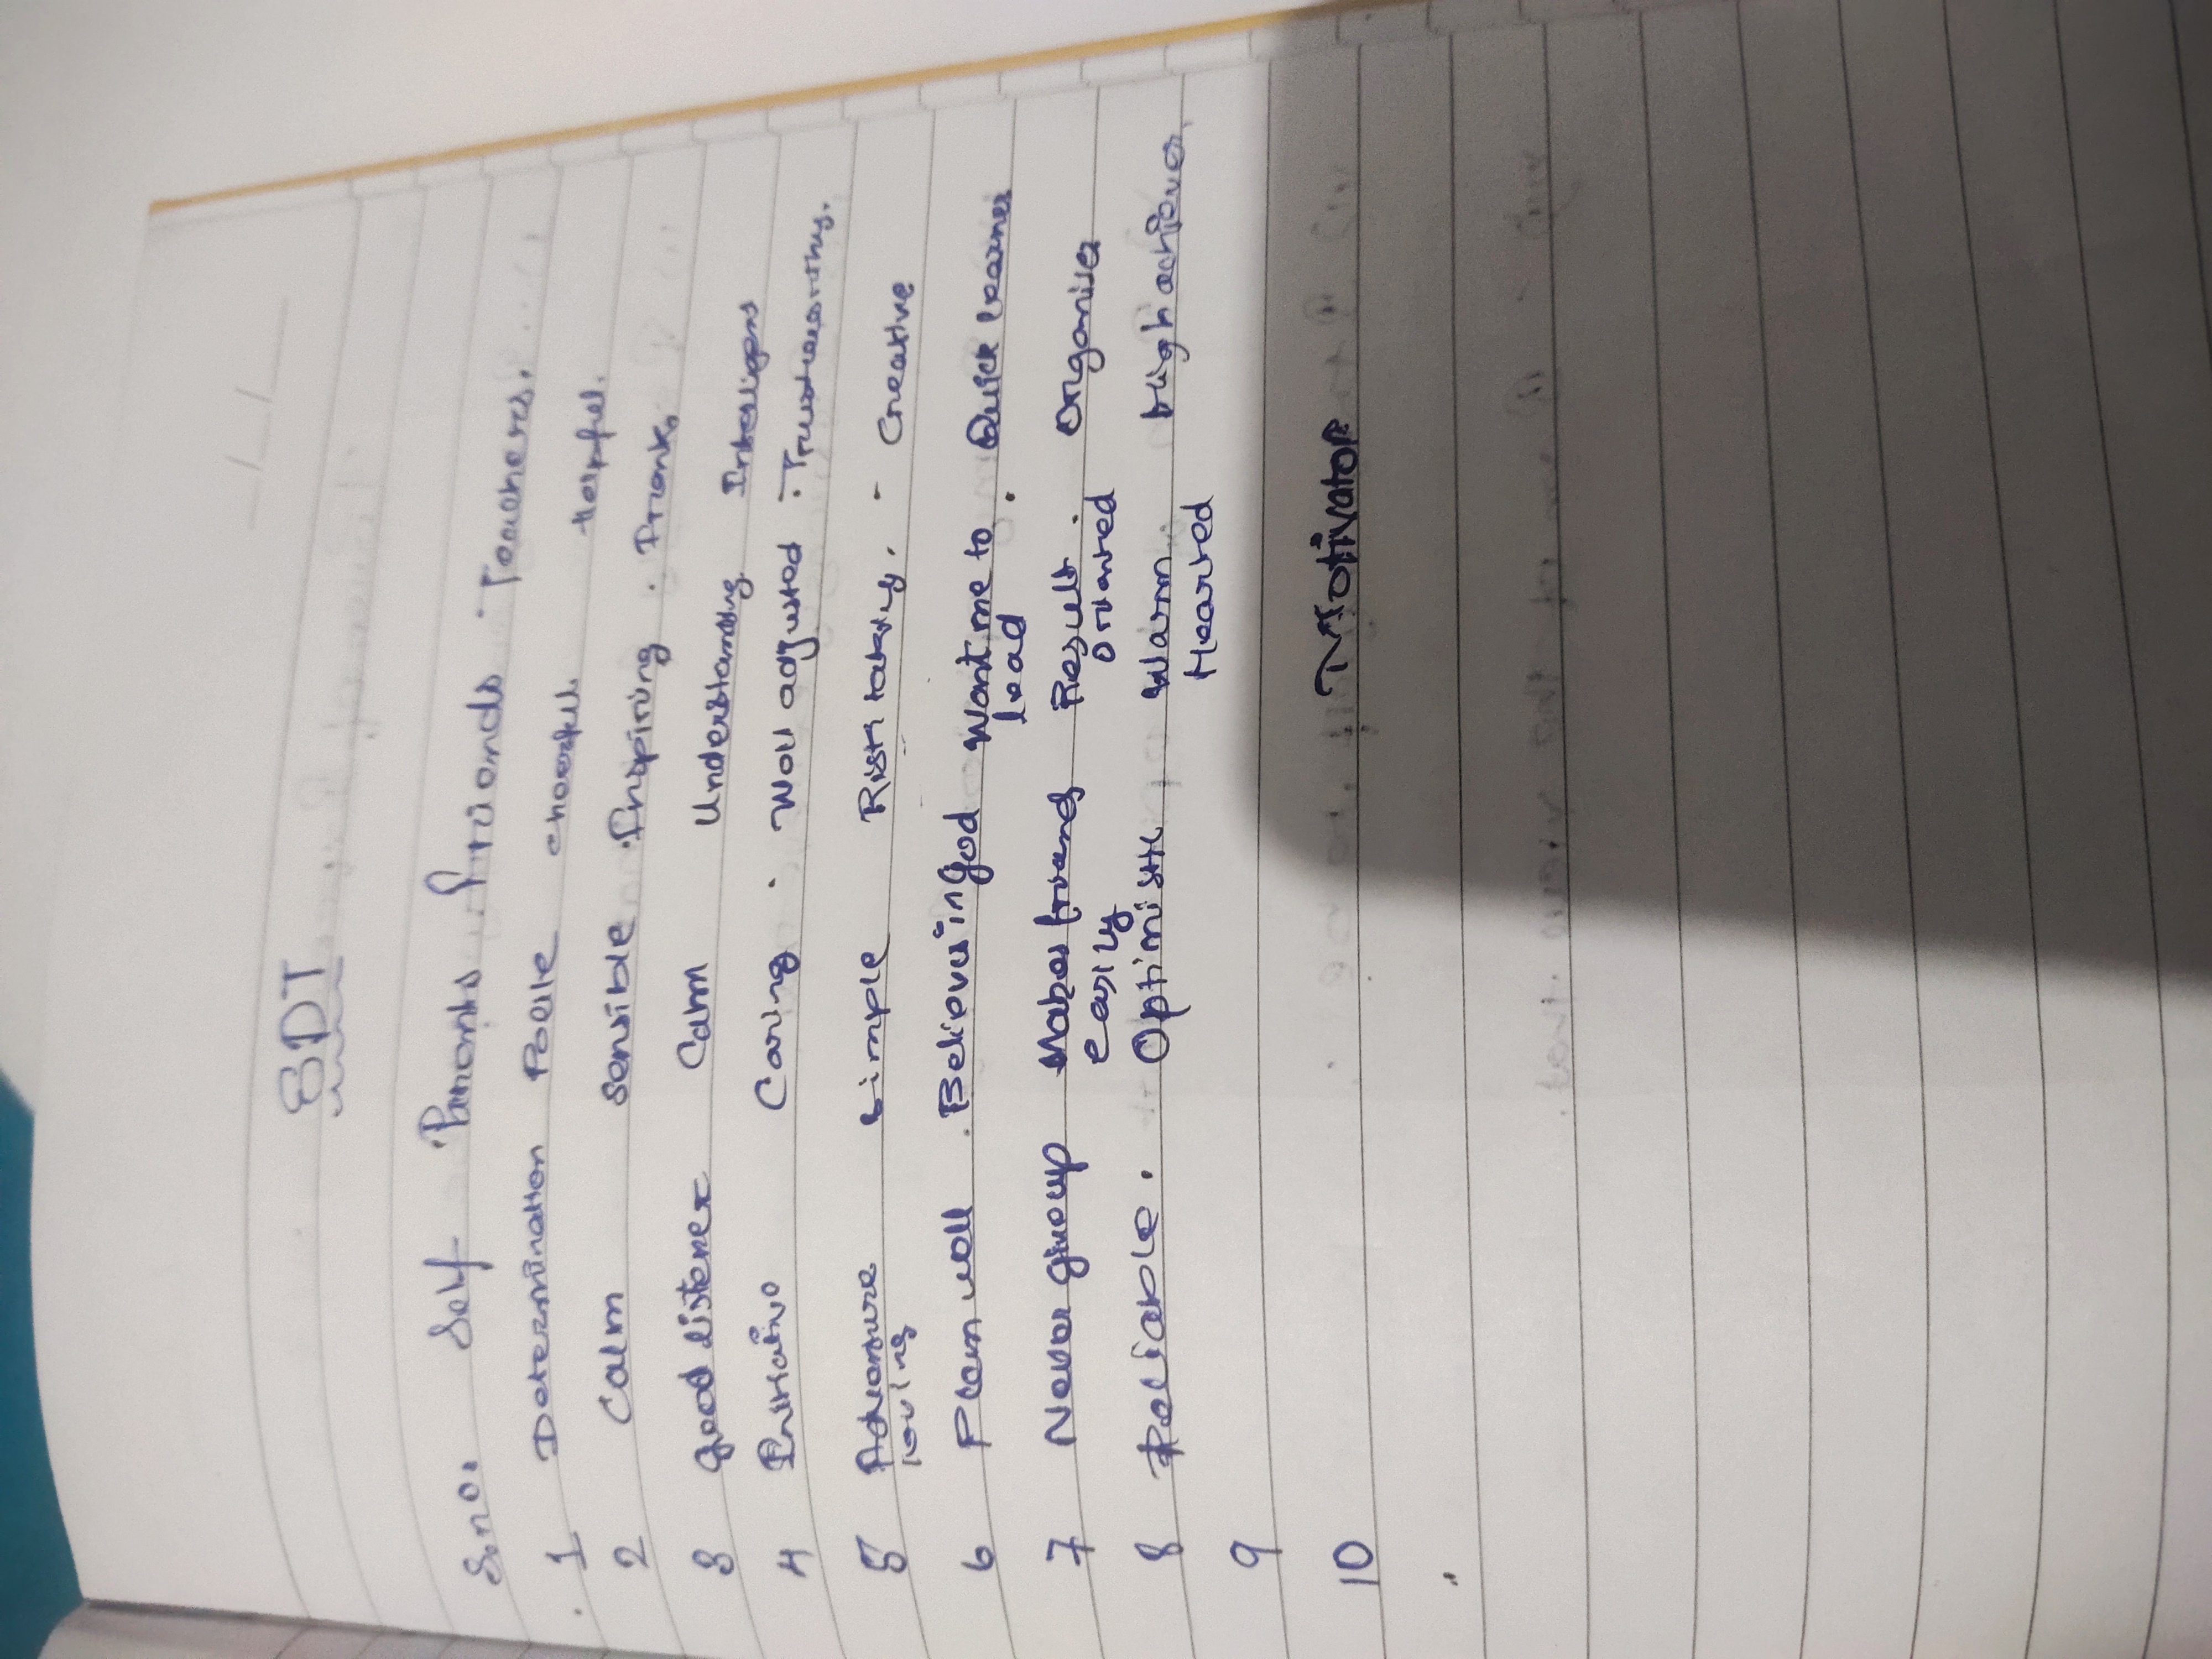 SDT
S.no. Self Parents Friends Teachers.
1 Determination Polite cheerful Helpful.
2 Calm Sensible Inspiring Frank
3 good listener Calm Understanding Intelligent
4 Initiative Caring Well adjusted Trustworthy.
5 Adventure Simple Risk taking. Creative
loving
6 Plan well Believes in God Want me to Quick learner
lead
7 Never give up Makes friends Result Organiser
easily oriented
8 Reliable. Optimistic Warm High achiever
Hearted
9
10 Motivator